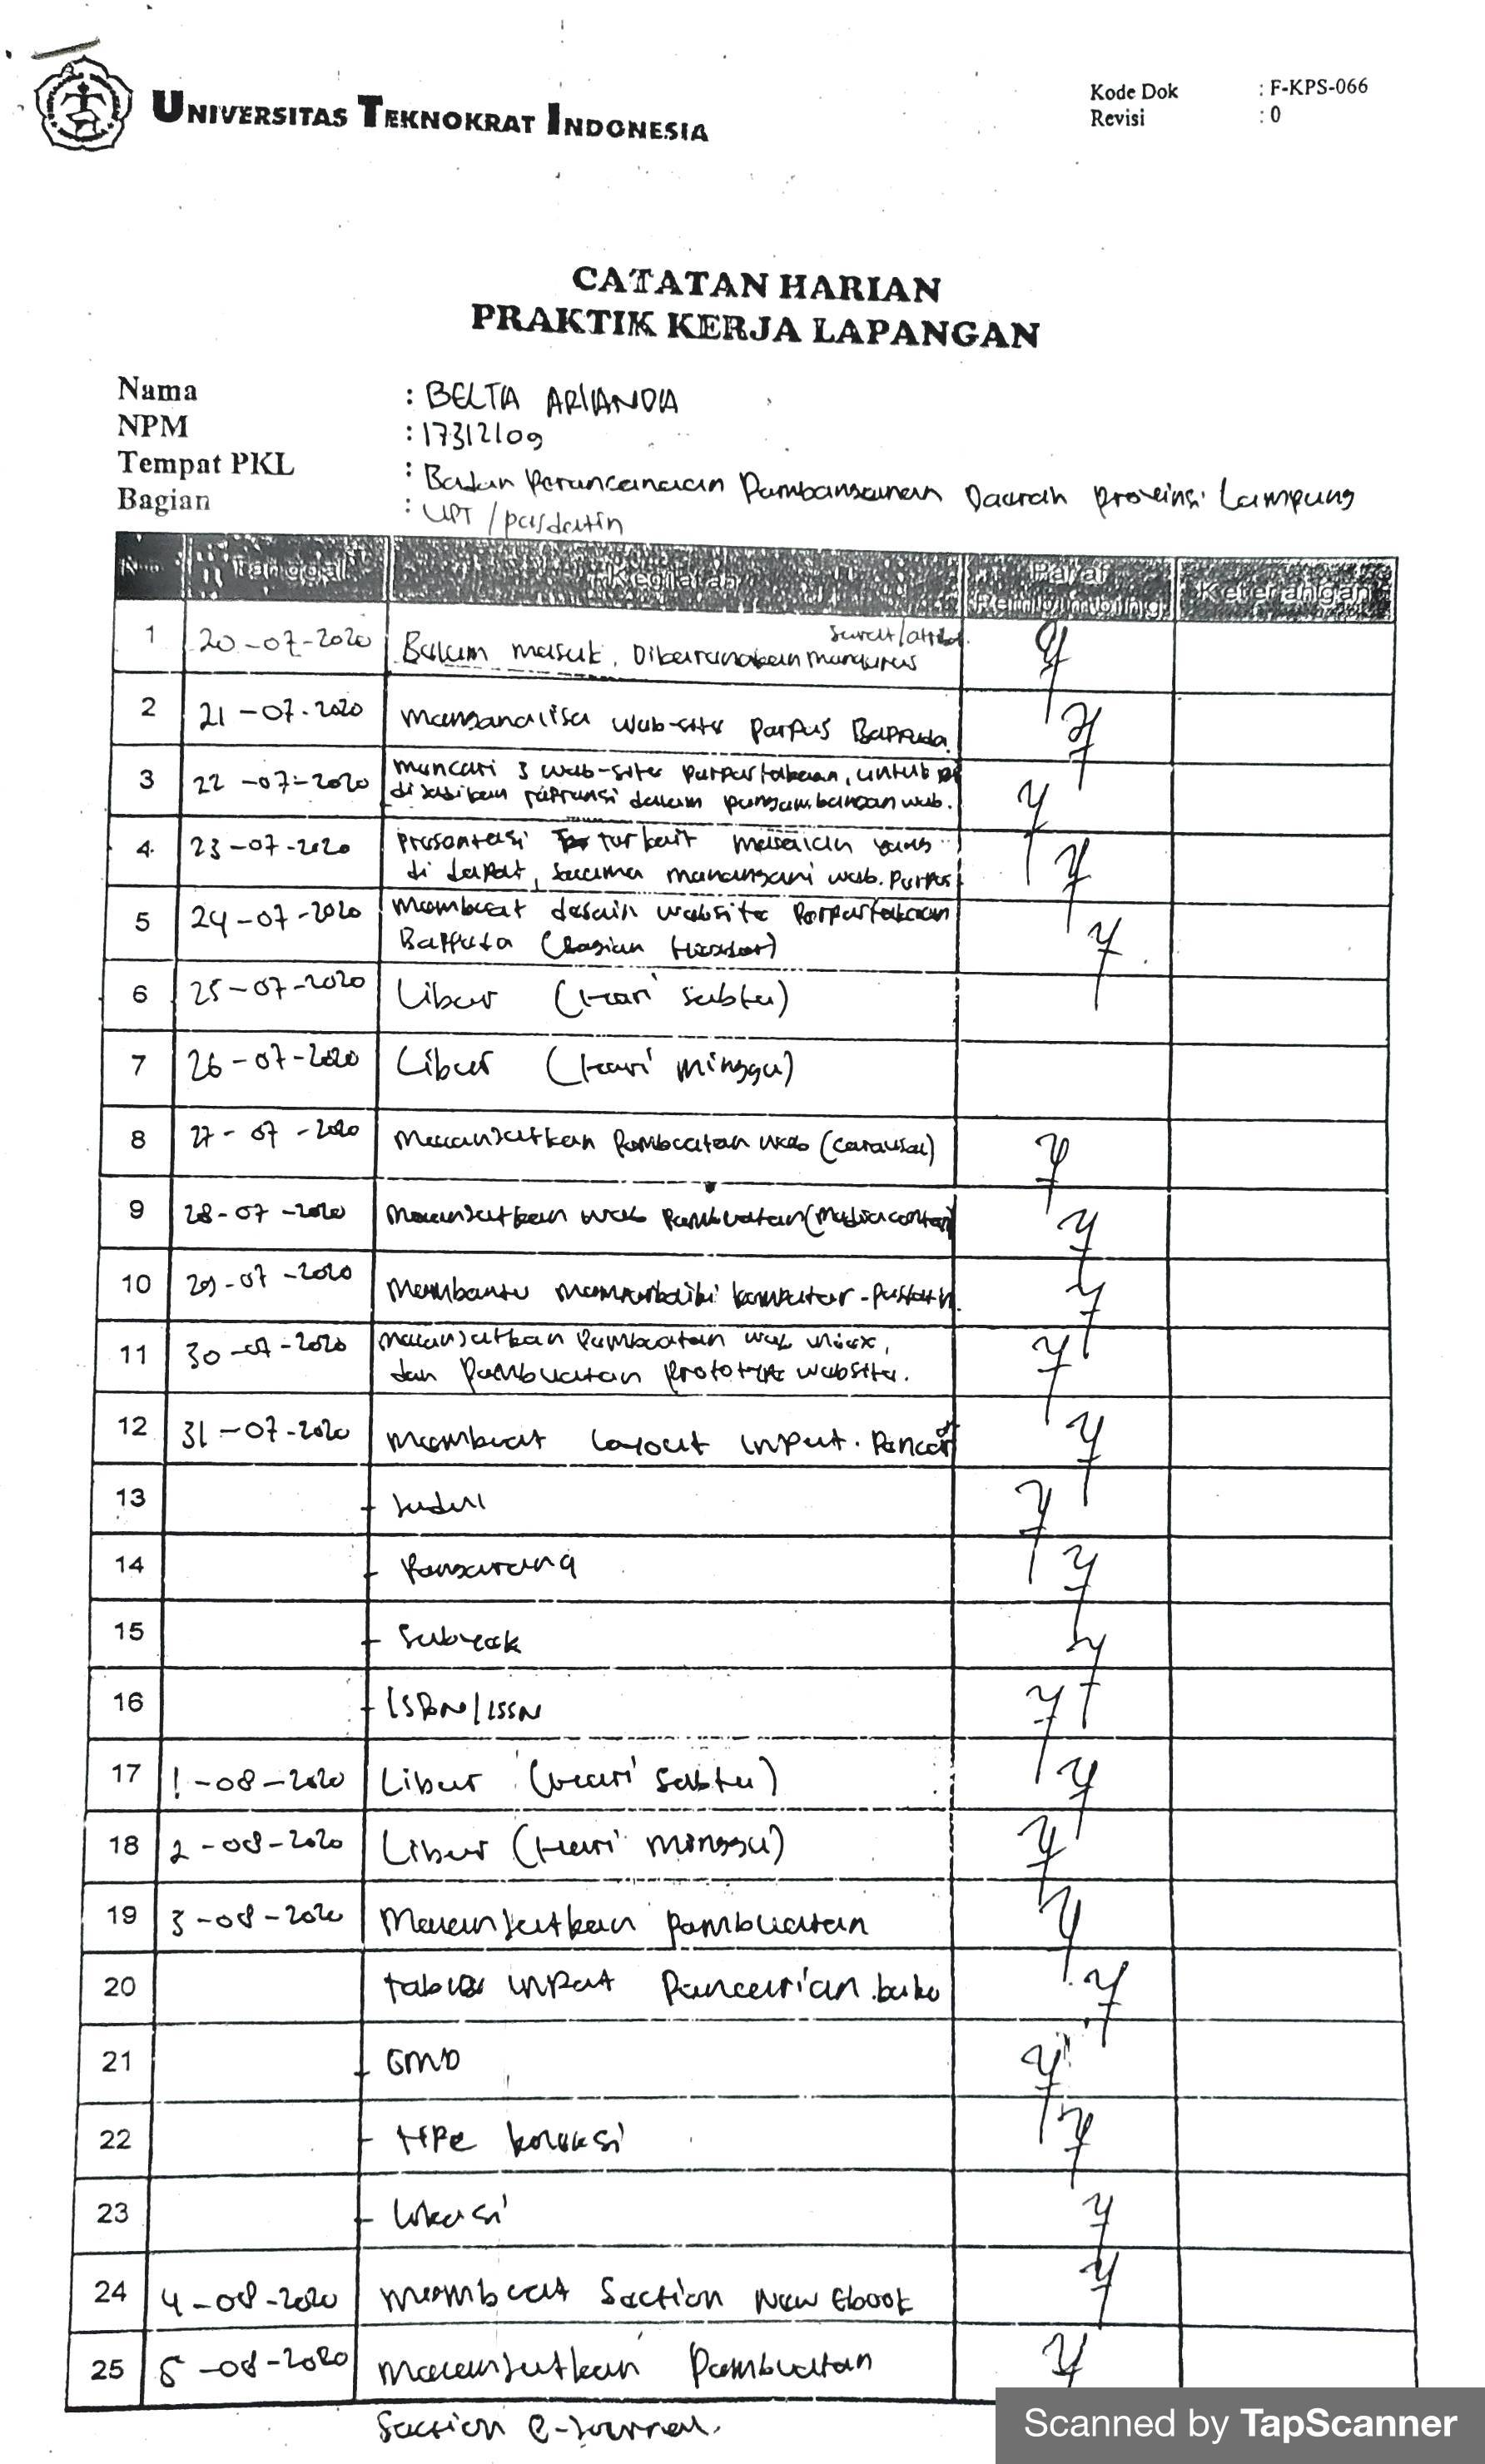 UNIVERSITAS TEKNOKRAT INDONESIA
Kode Dok : F-KPS-066
Revisi : 0
CATATAN HARIAN
PRAKTIK KERJA LAPANGAN
Nama : BELTA ARIANDIA
NPM : 17312109
Tempat PKL : Badan Perencanaan Pembangunan Daerah Provinsi Lampung
Bagian : UPT / pusdatin
No Tanggal Kegiatan Paraf Pembimbing Keterangan
1 20-07-2020 Belum masuk, Dikarenakan mengurus surat/
2 21-07-2020 Menganalisa web-site Perpus Bappeda.
3 22-07-2020 mencari 3 web-site perpustakaan, untuk
dijadikan referensi dalam pengembangan web.
4 23-07-2020 Presentasi terkait yang
di dapat, selama menangani web. Perpus
5 24-07-2020 Membuat desain website Perpustakaan
Bappeda (Bagian Header)
6 25-07-2020 Libur (Hari Sabtu)
7 26-07-2020 Libur (Hari Minggu)
8 27-07-2020 Melanjutkan Pembuatan web (carousel)
9 28-07-2020 Melanjutkan web Pembuatan (Media center)
10 29-07-2020 Membantu memperbaiki komputer - Pusdatin
11 30-07-2020 Melanjutkan Pembuatan web
dan Pembuatan prototype website.
12 31-07-2020 Membuat Layout input. Pencari
13 - Judul
14 - Pengarang
15 - Subyek
16 - ISBN/ISSN
17 1-08-2020 Libur (Hari Sabtu)
18 2-08-2020 Libur (Hari Minggu)
19 3-08-2020 Melanjutkan pembuatan
20 tabel input Pencarian buku
21 - GMD
22 - Tipe koleksi
23 - Lokasi
24 4-08-2020 Membuat Section New Ebook
25 5-08-2020 Melanjutkan Pembuatan
Section e-journal.
Scanned by TapScanner